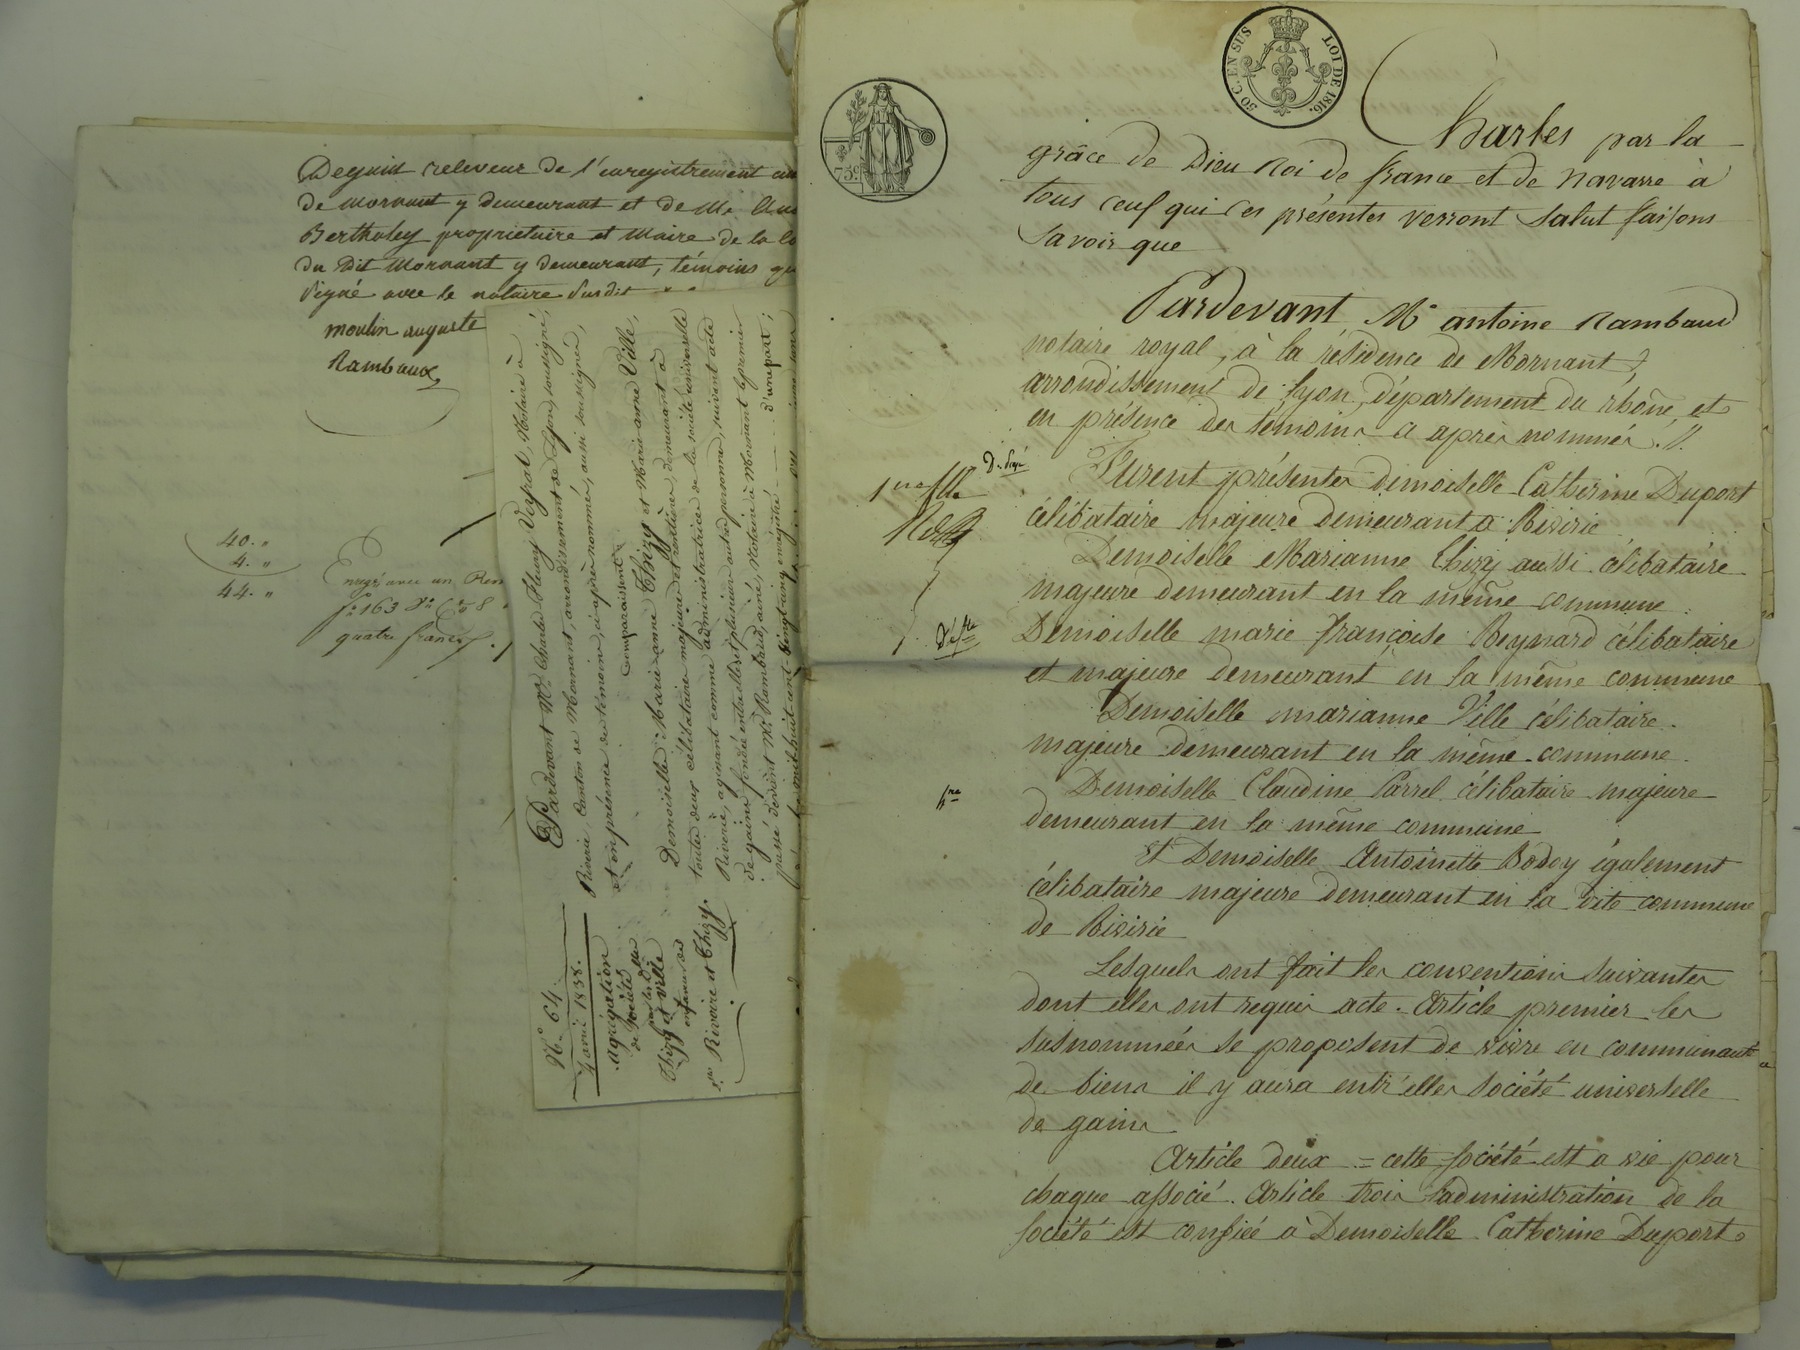 Deguin releveur de l'enregistrement
de mornant y demeurant et de Mr
Bertholey propriétaire et Maire de la
du dit Mornant y demeurant, témoins
signé avec le notaire susdit
moulin auguste
Rambaux
40. "
4. "
44. "
quatre francs
Pardevant Me. Charle Fleury Notaire à
Riverie Canton de Mornant, arrondissement de Lyon, soussigné,
et en présence des témoins, ci-après nommés, aussi soussignés,
Comparaissent
Demoiselle Marie-anne Thizy et Marie-anne Ville,
toutes deux célibataires majeures et rentières, demeurant à
Riverie, agissant comme administratrices de la société universelle
de gains fondée entr'elles et plusieurs autres personnes, suivant acte
passé devant Me. Rambaud, aîné, Notaire à Mornant le premier
mil huit cent vingt cinq enregistré d'une part;
N.° 64.
4 avril 1838.
agrégation
de Société
Thizy et Ville
Srs Rivoire et Thizy.
75c.
50 C. EN SUS
LOI DE 1816.
Charles par la
grâce de Dieu Roi de france et de Navarre à
tous ceux qui ces présentes verront Salut faisons
savoir que
Pardevant Me antoine Rambaud
notaire royal, à la résidence de Mornant,
arrondissement de Lyon, département du rhône, et
en présence des témoins ci après nommés.
Furent présentes demoiselle Catherine Duport
célibataire majeure demeurant a Riverie
Demoiselle Marianne Thizy aussi célibataire
majeure demeurant en la même commune.
Demoiselle marie françoise Reynard célibataire
et majeure demeurant en la même commune
Demoiselle marianne Ville célibataire
majeure demeurant en la même commune.
Demoiselle Claudine Carrel célibataire majeure
demeurant en la même commune
et Demoiselle Antoinette Bodoy également
célibataire majeure demeurant en la dite commune
de Riverie
Lesquels ont fait les conventions suivantes
dont elles ont requis acte. Article premier les
susnommées se proposent de vivre en communauté
de biens il y aura entr'elles société universelle
de gains
Article deux = cette société est a vie pour
chaque associé. Article trois l'administration de la
société est confiée à Demoiselle Catherine Duport